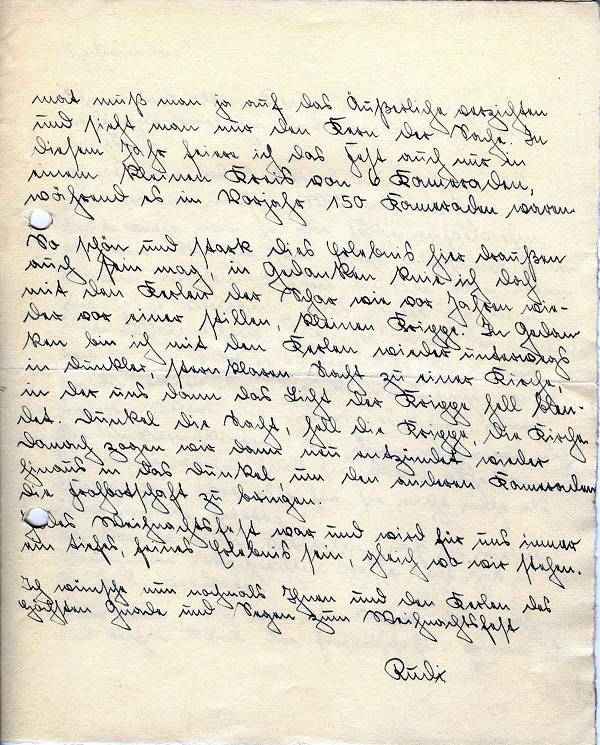 mat muß man ja auf das Äußerliche verzichten
und sieht man nur den Kern der Sache. In
diesem Jahr feiere ich das Fest auch nur in
einem kleinen Kreis von 6 Kameraden,
während es im Vorjahr 150 Kameraden waren.
So schön und stark dies Erlebnis hier draußen
auch sein mag, in Gedanken knie ich doch
mit den Kerlen der Schar wie vor Jahren wie-
der vor einer stillen, kleinen Krippe. In Gedan
ken bin ich mit den Kerlen wieder unterwegs
in dunkler, sternklaren Nacht zu einer Kirche,
in der uns dann das Licht der Krippe hell blen-
det. Dunkel die Nacht, hell die Krippe, die Kirche.
Danach zogen wir dann neu entzündet wieder
hinaus in das Dunkel, um den anderen Kameraden
die Frohbotschaft zu bringen.
Jedes Weihnachtsfest war und wird für uns immer
ein tiefes, feines Erlebnis sein, gleich wo wir stehen.
Ich wünsche nun nochmals Ihnen und den Kerlen des
Höchsten Gnade und Segen zum Weihnachtsfest
Rudi